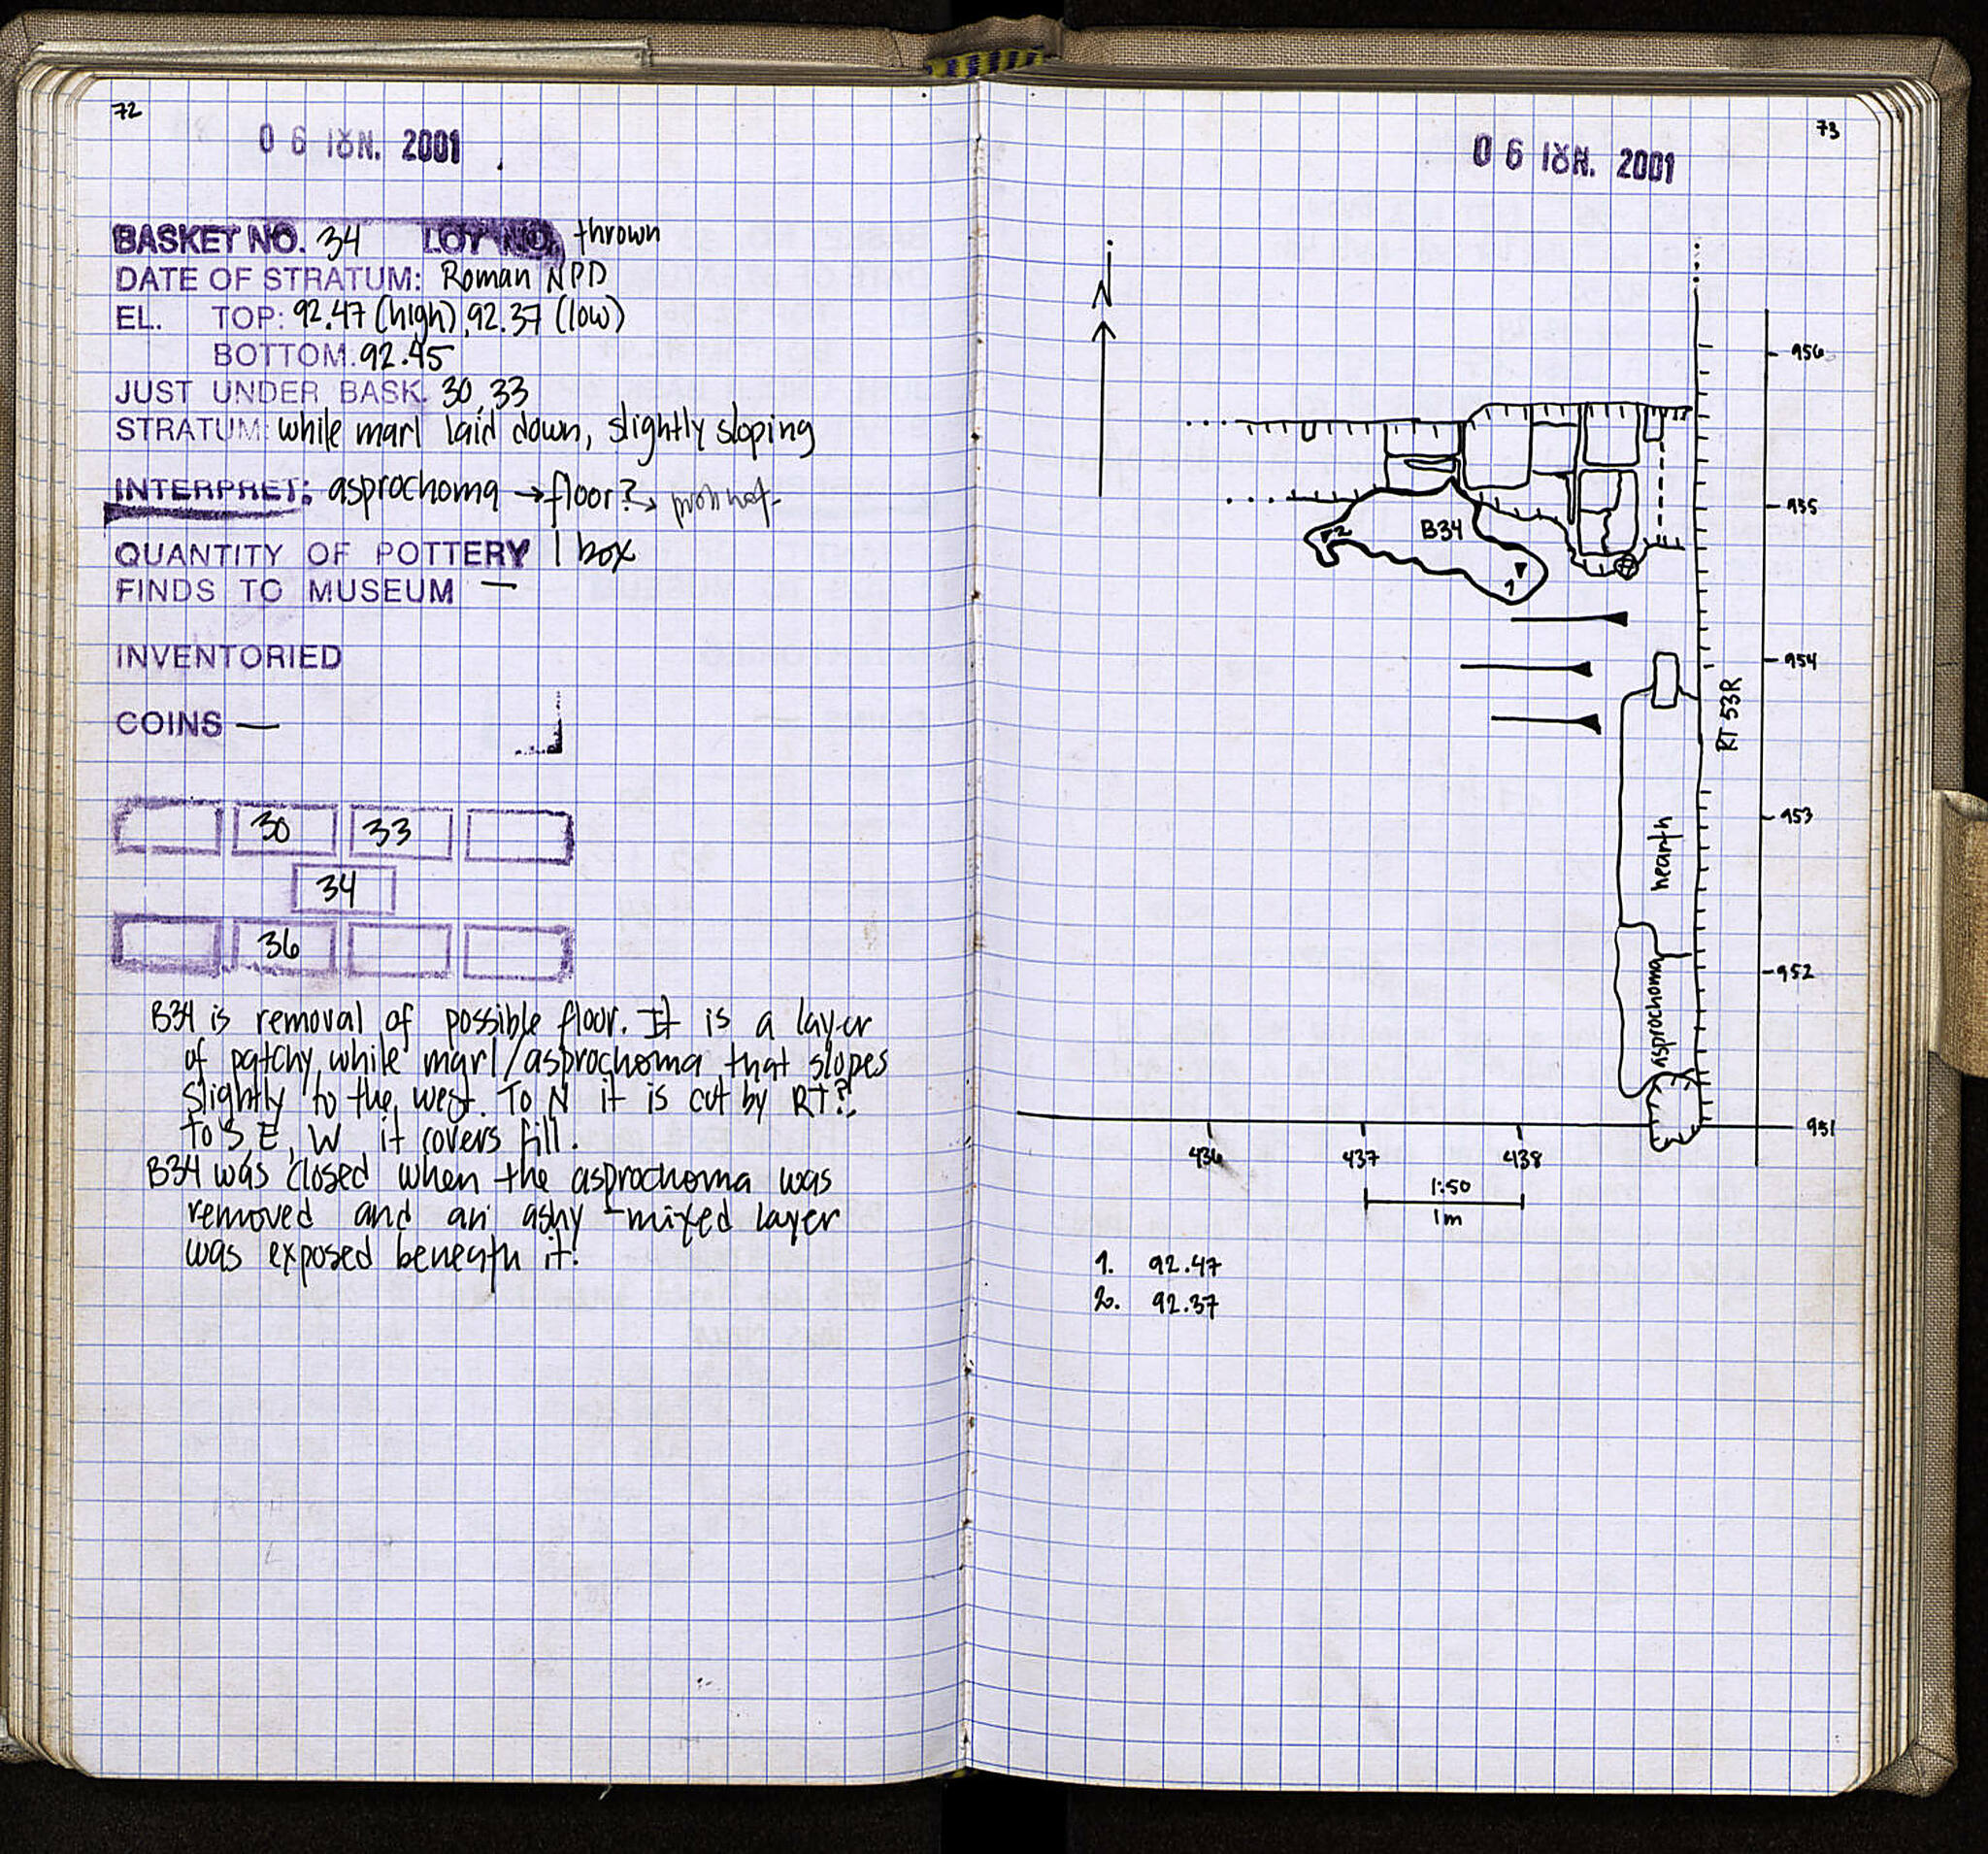 72
06 ΙȢΝ. 2001
BASKET NO. 34 LOT NO. thrown
DATE OF STRATUM: Roman NPD
EL. TOP: 92.47 (high), 92.37 (low)
BOTTOM. 92.45
JUST UNDER BASK. 30, 33
STRATUM: while marl laid down, slightly sloping
INTERPRET: asprochoma → floor? → prob not.
QUANTITY OF POTTERY 1 box
FINDS TO MUSEUM —
INVENTORIED
COINS —
30 33
34
36
B34 is removal of possible floor. It is a layer
of patchy while marl/asprochoma that slopes
slightly to the west. To N it is cut by RT?
to S, E, W it covers fill.
B34 was closed when the asprochoma was
removed and an ashy-mixed layer
was exposed beneath it.
73
06 ΙȢΝ. 2001
N
956
955
B34
2
1
954
RT 53R
953
hearth
952
asprochoma
951
436 437 438
1:50
1m
1. 92.47
2. 92.37